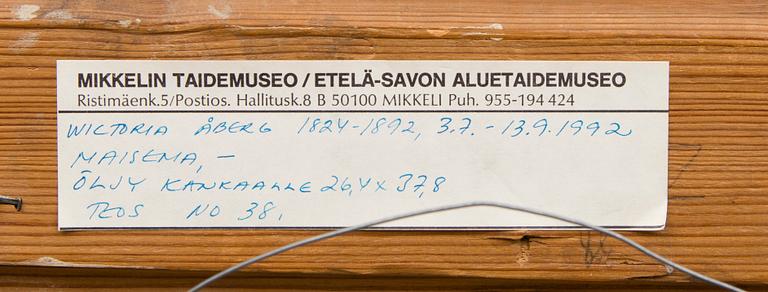 MIKKELIN TAIDEMUSEO / ETELÄ-SAVON ALUETAIDEMUSEO
Ristimäenk.5/Postios. Hallitusk.8 B 50100 MIKKELI Puh. 955-194 424
WICTORIA ÅBERG 1824-1892, 3.7. - 13.9.1992
MAISEMA, -
ÖLJY KANKAALLE 26,4 x 37,8
TEOS NO 38.